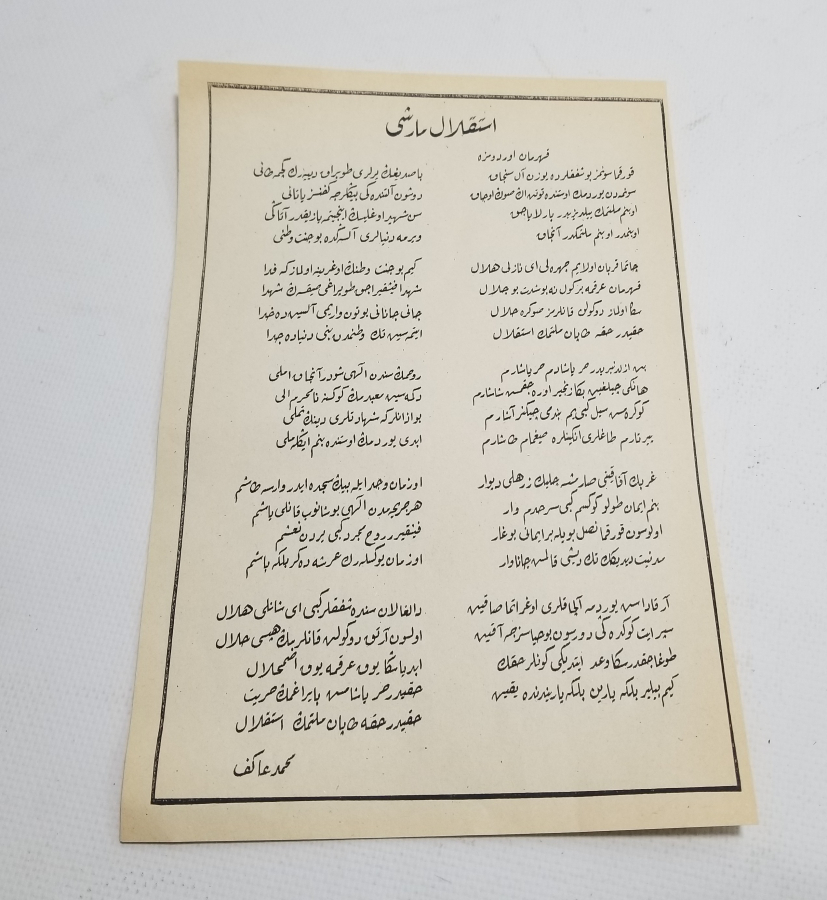 استقلال مارشی
قهرمان اوردومزه
قورقما سونمز بو شفقلرده یوزن آل سنجاق
سونمدن یوردمك اوستنده توتن اڭ صوك اوجاق
او بنم ملتمك ییلدیزیدر پارلایاجق
او بنمدر او بنم ملتمكدر آنجاق
چاتما قربان اولایم چهره كی ای نازلی هلال
قهرمان عرقمه بر كول نه بو شدت بو جلال
سكا اولماز دوكولن قانلرمز صوكره حلال
حقیدر حقه طاپان ملتمك استقلال
بن ازلدنبریدر حر یاشادم حر یاشارم
هانكی چیلغین بكا زنجیر اوره جقمش شاشارم
كوكره مش سیل كبی یم بندمی چیكنر آشارم
ییرتارم طاغلری انكینلره صیغمام طاشارم
غربك آفاقنی صارمشسه چلیك زرهلی دیوار
بنم ایمان طولو كوكسم كبی سرحدم وار
اولوسون قورقما نصل بویله بر ایمانی بوغار
مدنیت دیدیكك تك دیشی قالمش جاناوار
آرقاداش یوردمه آلچاقلری اوغراتما صاقین
سپر ایت كوكده كی دورسون بو حیاسزجه آقین
طوغاجقدر سكا وعد ایتدیكی كونلر حقك
كیم بیلیر بلكه یارین بلكه یاریندنده یقین
باصدیغك یرلری طوپراق دییه رك كچمه طانی
دوشون آلتنده كی بیكلرجه كفنسز یاتانی
سن شهید اوغلیسك اینجیتمه یازیقدر آتاكی
ویرمه دنیالری آلسه كده بو جنت وطنی
كیم بو جنت وطنك اوغرینه اولماز كه فدا
شهدا فیشقیراجق طوپراغی صیقسه ك شهدا
جانی جانانی بوتون واریمی آلسین ده خدا
ایتمه سین تك وطنمدن بنی دنیاده جدا
روحمك سندن الهی شودر آنجاق املی
دكمه سین معبدمك كوكسنه نامحرم الی
بو اذانلر كه شهادتلری دینك تملی
ابدی یوردمك اوستنده بنم ایكله ملی
او زمان وجد ایله بیك سجده ایدر وارسه طاشم
هر جریحه مدن الهی بوشانوب قانلی یاشم
فیشقیرر روح مجرد كبی یردن نعشم
او زمان یوكسله رك عرشه دكر بلكه باشم
دالغالان سنده شفقلر كبی ای شانلی هلال
اولسون آرتق دوكولن قانلرمك هپسی حلال
ابدیا سكا یوق عرقمه یوق اضمحلال
حقیدر حر یاشامش بایراغمك حریت
حقیدر حقه طاپان ملتمك استقلال
محمد عاكف